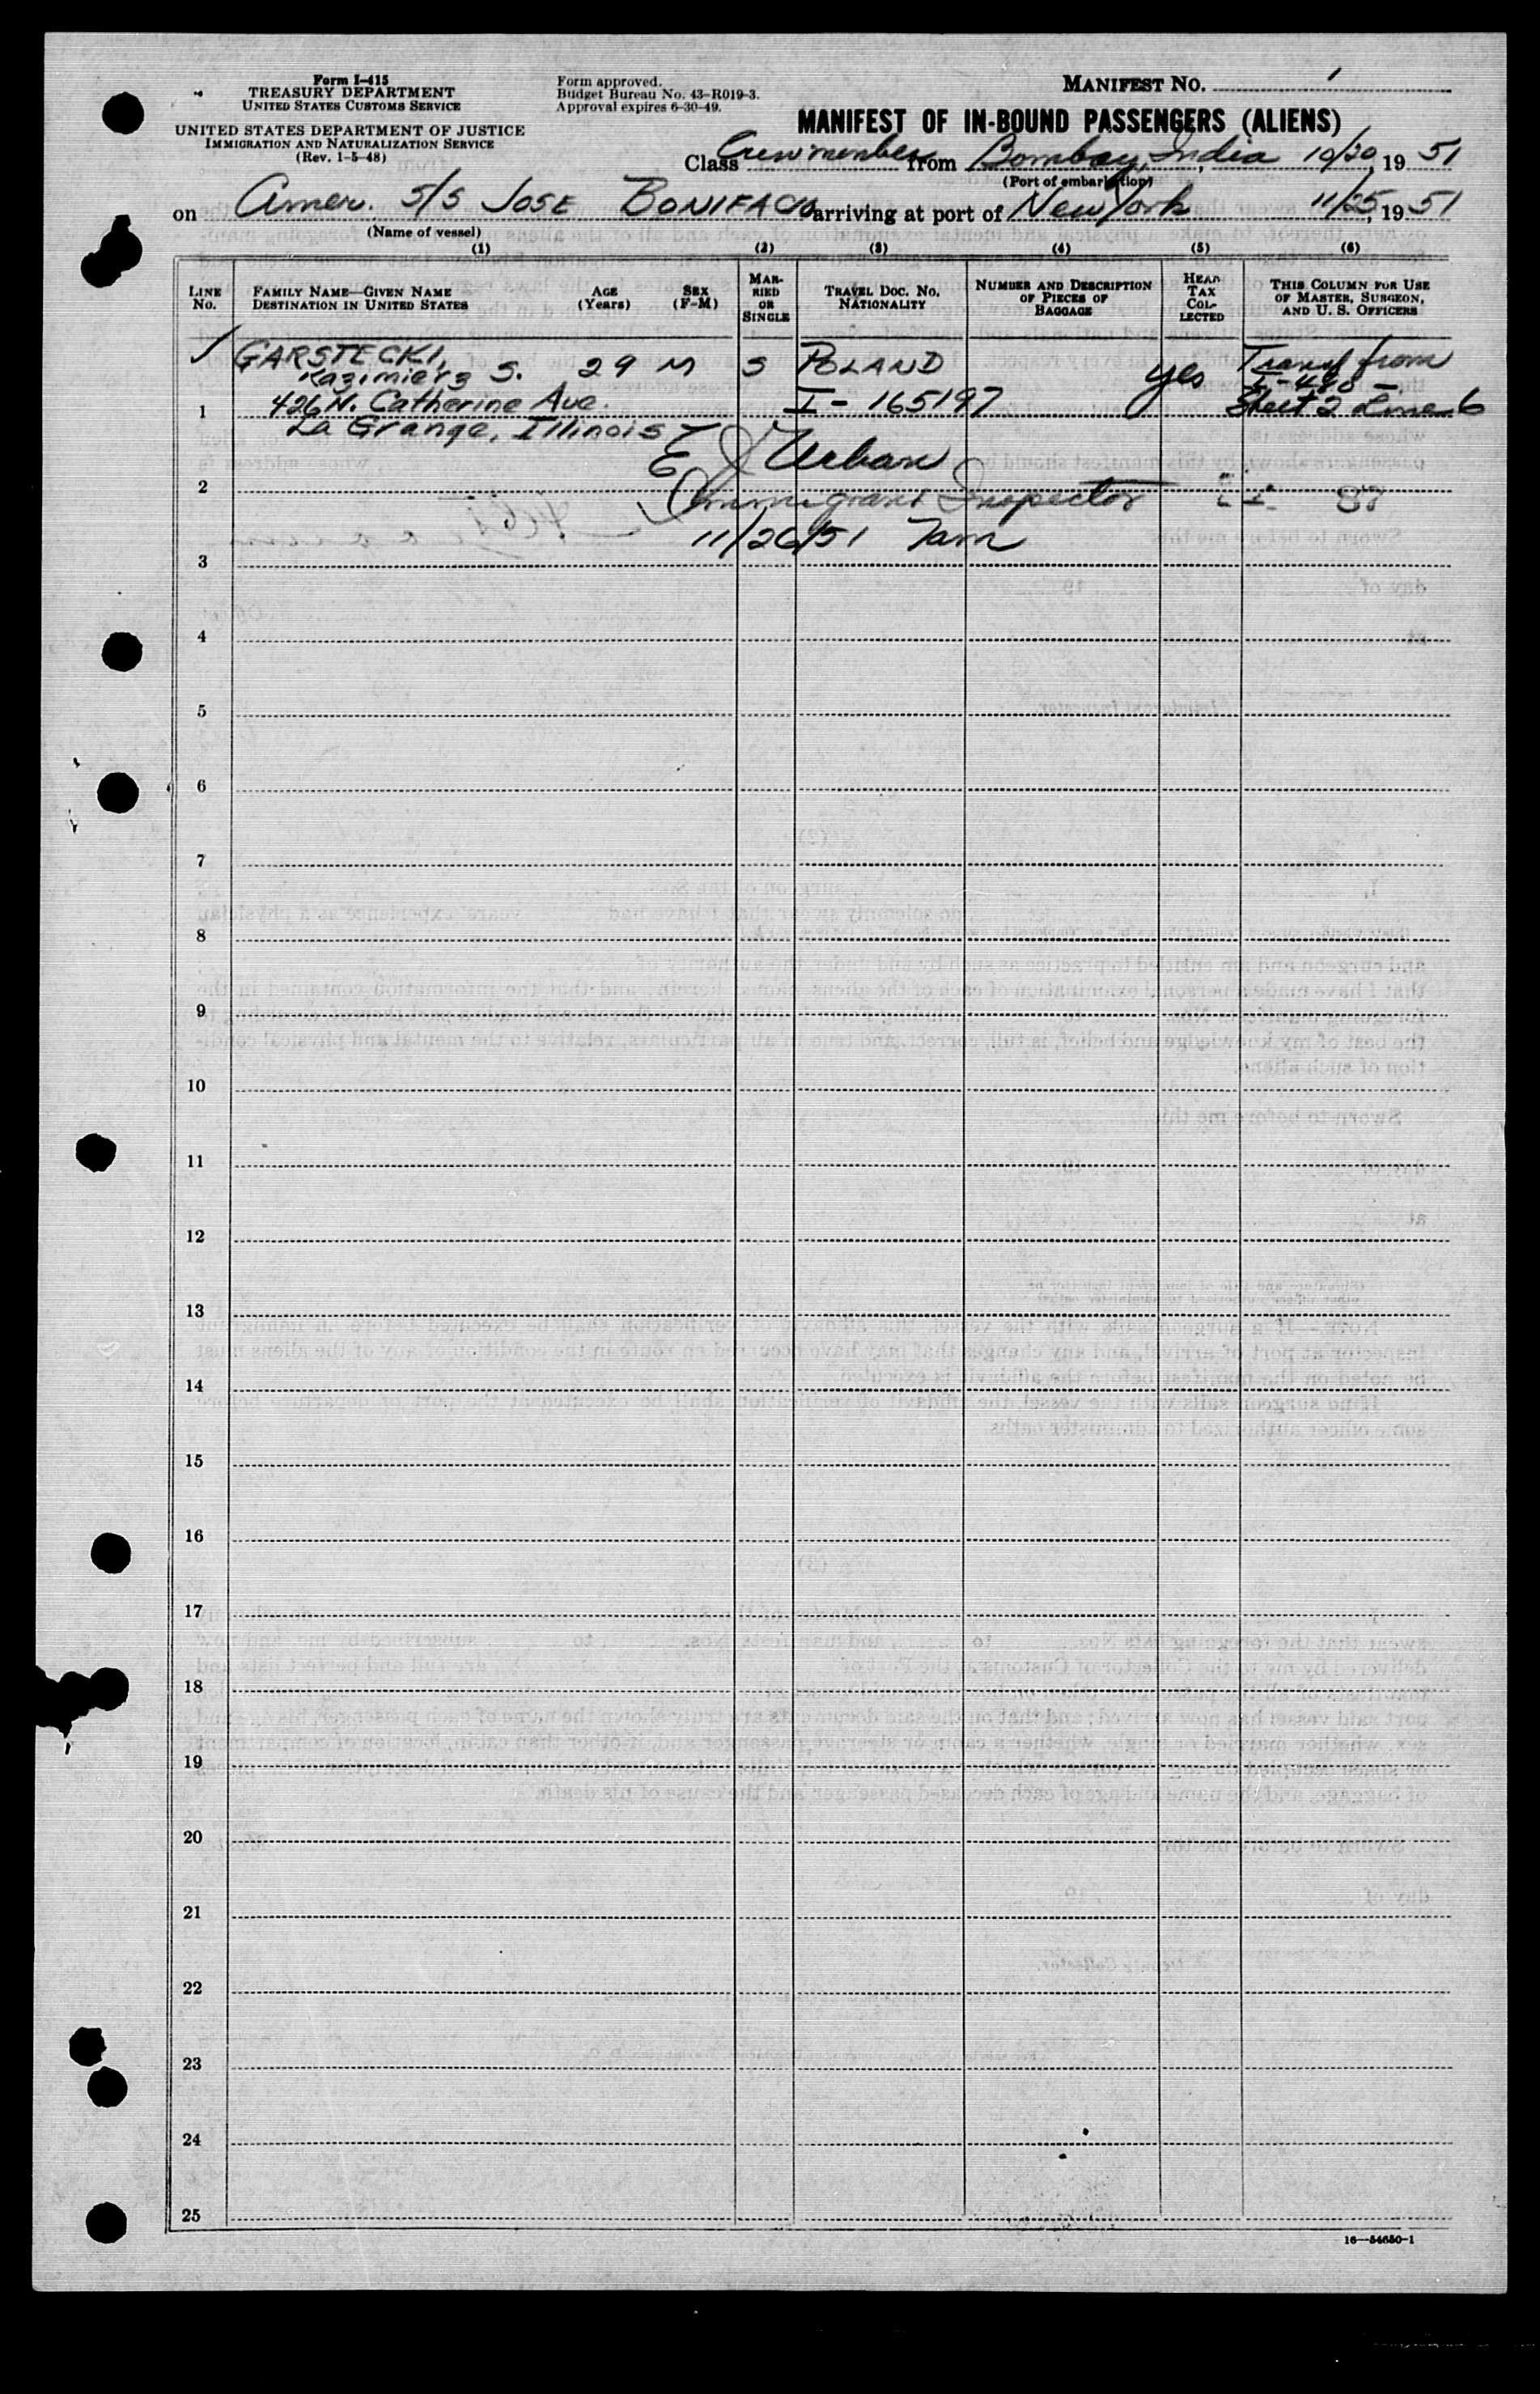 Form I-415
TREASURY DEPARTMENT
UNITED STATES CUSTOMS SERVICE
UNITED STATES DEPARTMENT OF JUSTICE
IMMIGRATION AND NATURALIZATION SERVICE
(Rev. 1-5-48)
Form approved.
Budget Bureau No. 43-R019-3.
Approval expires 6-30-49.
MANIFEST NO. 1
MANIFEST OF IN-BOUND PASSENGERS (ALIENS)
Class Crewmember from Bombay, India 10/20, 19 51
(Port of embarkation)
on Amer. S/S JOSE BONIFACIO arriving at port of New York 11/25, 19 51
(Name of vessel)
(1) (2) (3) (4) (5) (6)
LINE No.
FAMILY NAME—GIVEN NAME
DESTINATION IN UNITED STATES
AGE (Years)
SEX (F-M)
MARRIED OR SINGLE
TRAVEL DOC. NO. NATIONALITY
NUMBER AND DESCRIPTION OF PIECES OF BAGGAGE
HEAD TAX COLLECTED
THIS COLUMN FOR USE OF MASTER, SURGEON, AND U. S. OFFICERS
GARSTECKI, 29 M S POLAND yes Transf from
Kazimierz S. I-480
1 426 N. Catherine Ave. I-165197 Sheet 2 Line 6
La Grange, Illinois
E J Urban
2 Immigrant Inspector
11/26/51 7am
3
4
5
6
7
8
9
10
11
12
13
14
15
16
17
18
19
20
21
22
23
24
25
16—54650-1